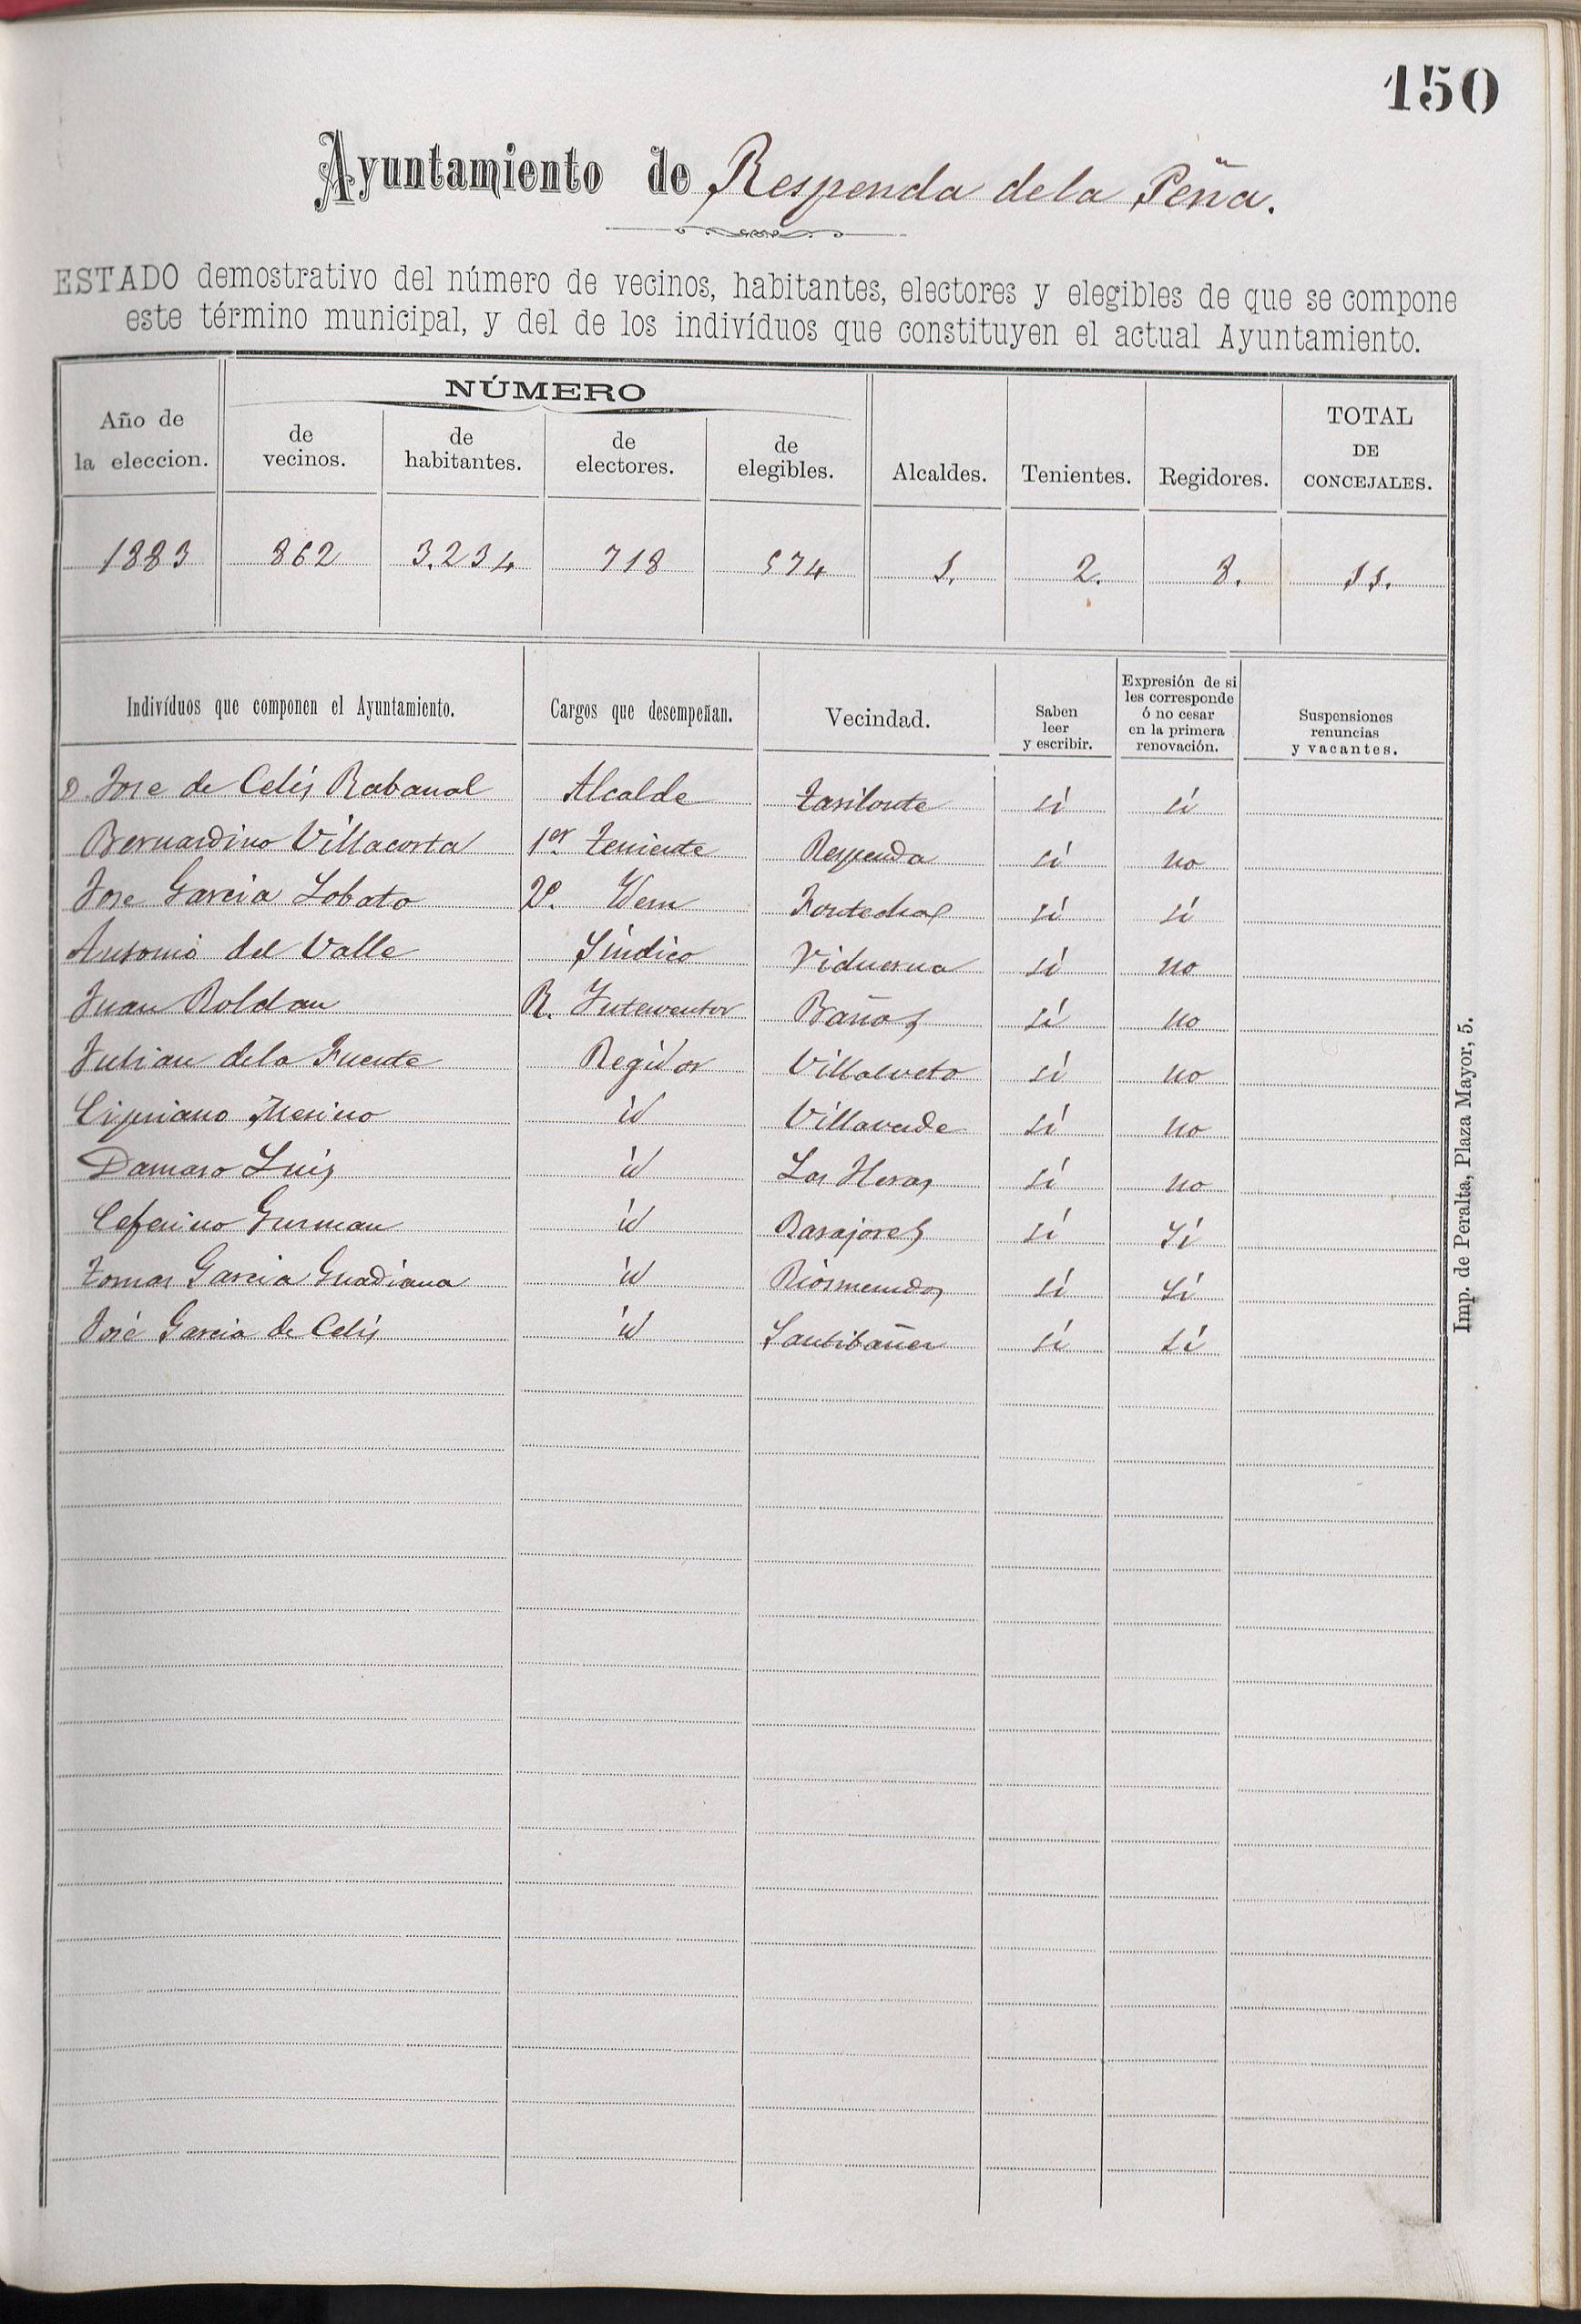 150
Ayuntamiento de Respenda de la Peña.
ESTADO demostrativo del número de vecinos, habitantes, electores y elegibles de que se compone
este término municipal, y del de los indivíduos que constituyen el actual Ayuntamiento.
NÚMERO
Año de la eleccion. de vecinos. de habitantes. de electores. de elegibles. Alcaldes. Tenientes. Regidores. TOTAL DE CONCEJALES.
1883 862 3.234 718 574 1. 2. 8. 11.
Indivíduos que componen el Ayuntamiento. Cargos que desempeñan. Vecindad. Saben leer y escribir. Expresión de si les corresponde ó no cesar en la primera renovación. Suspensiones renuncias y vacantes.
D. Jose de Celis Rabanal Alcalde Tarilonte si si
Bernardino Villacorta 1er. Teniente Respenda si no
Jose Garcia Lobato 2º. Idem Fontechas si si
Antonio del Valle Síndico Viduerna si no
Juan Roldan R. Interventor Baños si no
Julian de la Fuente Regidor Villalveto si no
Cipriano Merino id Villaverde si no
Damaso Luis id Las Heras si no
Ceferino Guzman id Barajores si Si
Tomas Garcia Guadiana id Riosmenudos si Si
José Garcia de Celis id Santibañez si Si
Imp. de Peralta, Plaza Mayor, 5.